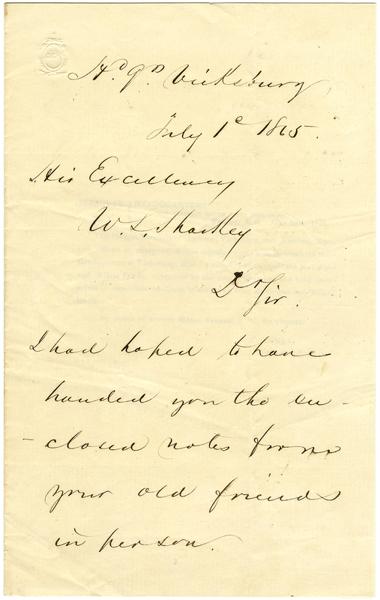 Hd. Qrs. Vicksburg,
July 1st 1865.
His Excellency
W. L. Sharkey
Dr Sir.
I had hoped to have
handed you the en-
-closed notes from
your old friends
in person.